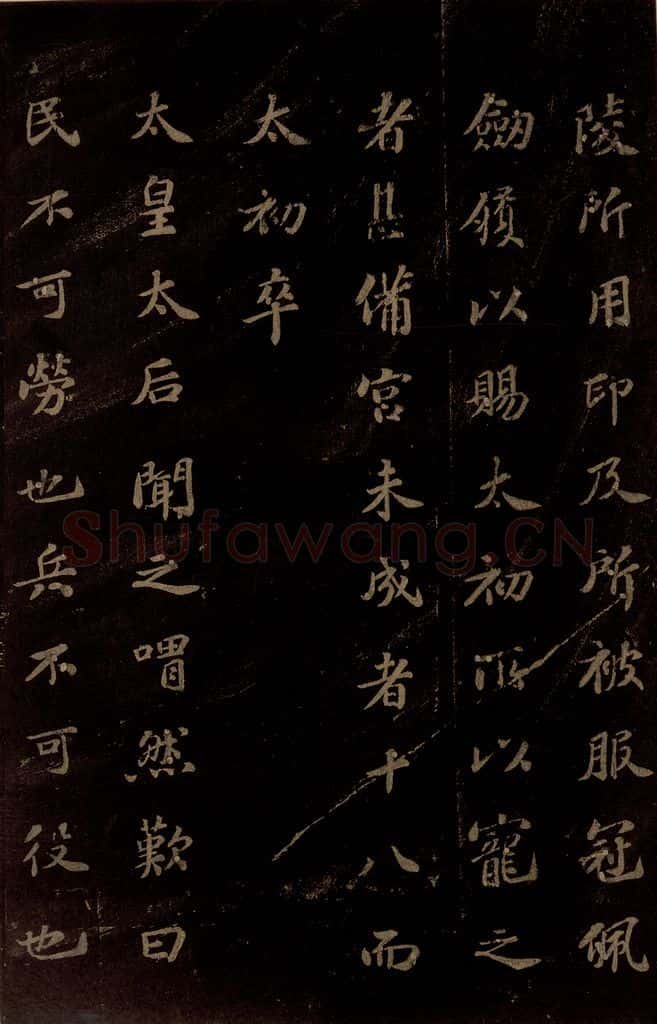 陵所用印及所被服冠佩
劒履以賜太初所以寵之
者甚備宮未成者十八而
太初卒
太皇太后聞之喟然歎曰
民不可勞也兵不可役也
Shufawang.CN